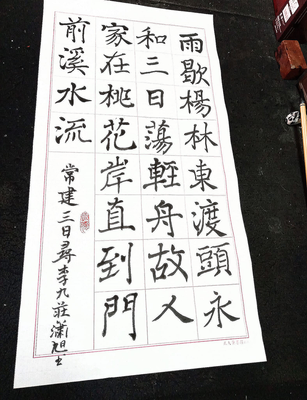 雨歇楊林東渡頭永
和三日蕩輕舟故人
家在桃花岸直到門
前溪水流
常建三日尋李九莊瀟旭书